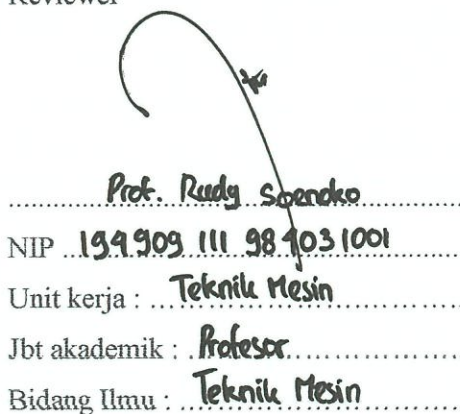 Reviewer
Prof. Rudy Soenoko
NIP 194909 111 98 4031001
Unit kerja : Teknik Mesin
Jbt akademik : Profesor
Bidang Ilmu : Teknik Mesin